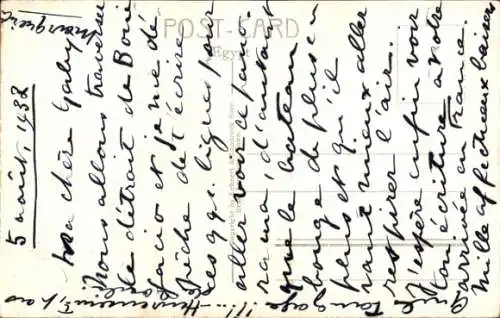 POST-CARD
Egypt
5 août, 1932
Ma chère Gaby
Nous allons traverser
le détroit de Boni
facio et je me dé
pêche de t'écrire
ces qqs. lignes par
aller voir le pano
rama, d'autant
que le bateau
bouge de plus en
plus et qu'il
vaut mieux aller
respirer l'air.
J'espère enfin voir
ton écriture à notre
arrivée en France.
Mille affectueux baisers
Quel Tangage !!!...
Heureusement, pas
de roulis